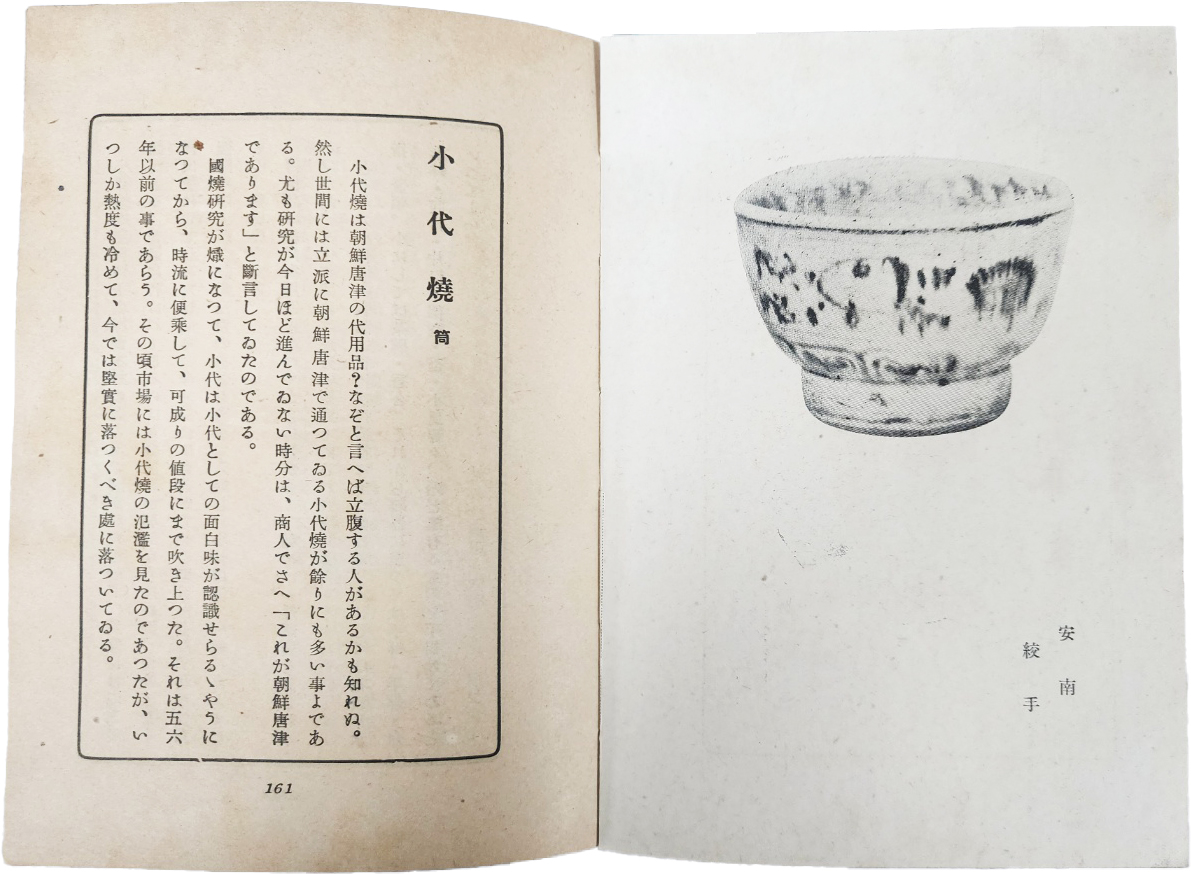 安南
絞手
小代燒 筒
小代燒は朝鮮唐津の代用品?なぞと言へば立腹する人があるかも知れぬ。
然し世間には立派に朝鮮唐津で通つてゐる小代燒が餘りにも多い事よであ
る。尤も硏究が今日ほど進んでゐない時分は、商人でさへ「これが朝鮮唐津
であります」と斷言してゐたのである。
國燒硏究が熾になつて、小代は小代としての面白味が認識せらるゝやうに
なつてから、時流に便乘して、可成りの値段にまで吹き上つた。それは五六
年以前の事であらう。その頃市場には小代燒の氾濫を見たのであつたが、い
つしか熱度も冷めて、今では堅實に落つくべき處に落ついてゐる。
161